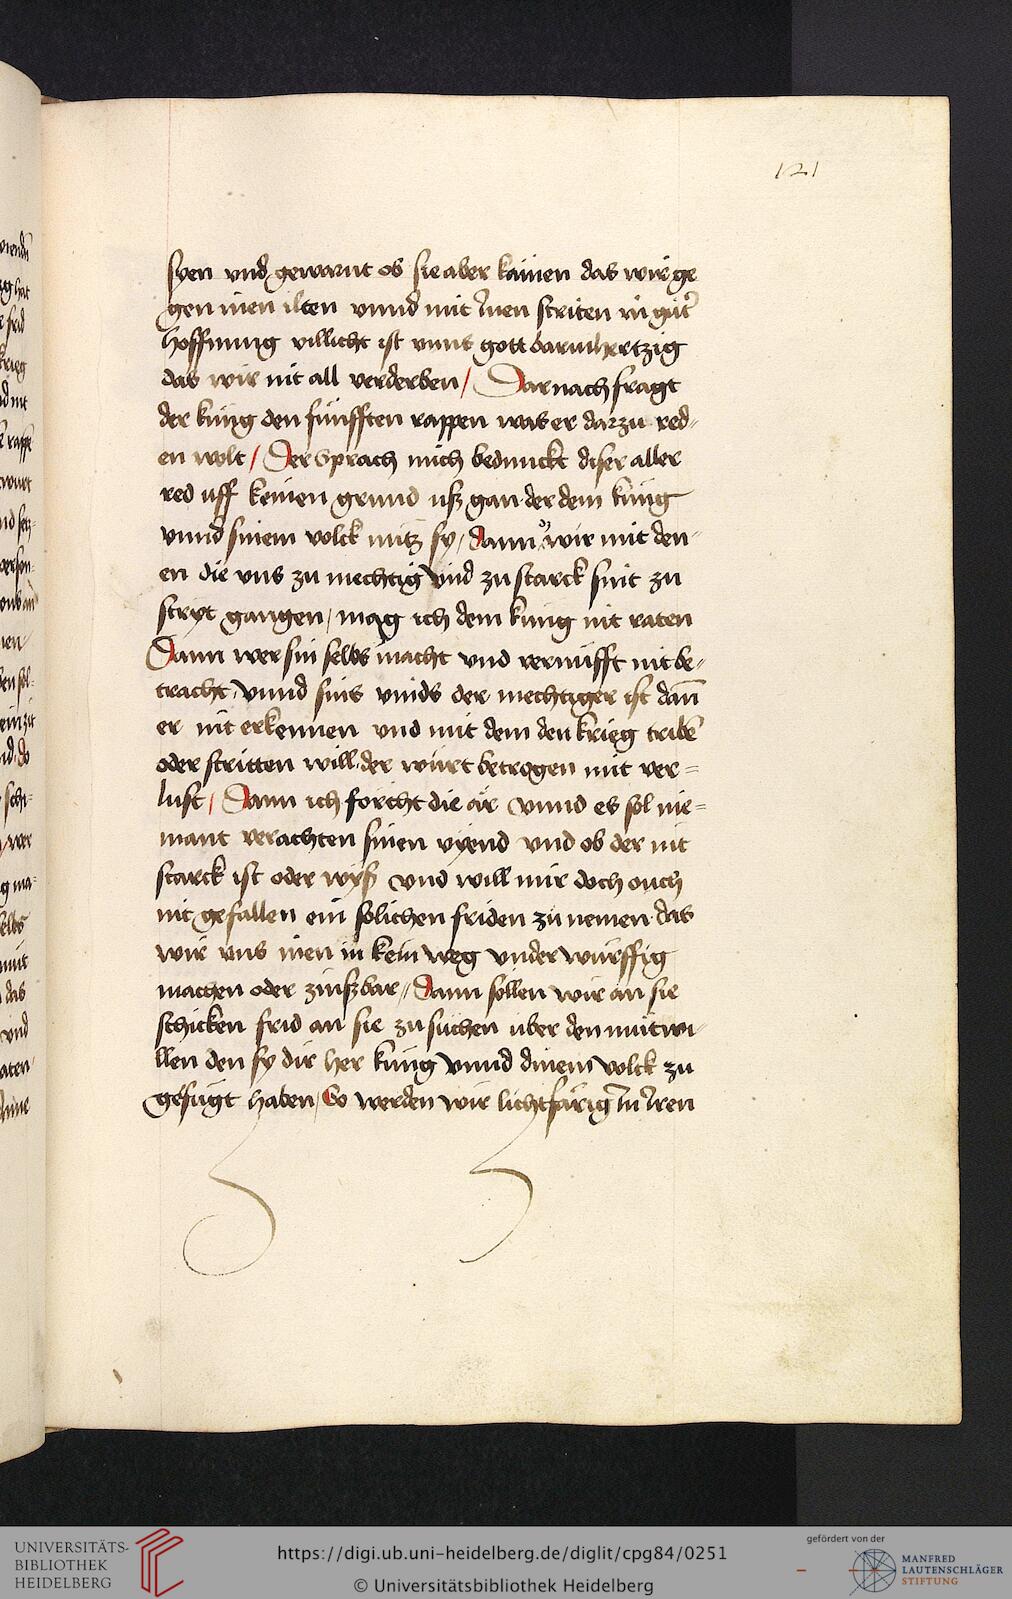 121
syen vnd gewarnt ob sie aber kainen das wir ge
gen inen ilten vnnd mit Inen striten in gůt
hoffnung villicht ist vnns gott barmhertzig
das wir nit all verderben / Darnach fragt
der küng den fünfften rappen was er darzu red-
en wolt / Der sprach mich bedunckt diser aller
red uff keinen grund usz gan der dem küng
vnnd sinem volck nütz sy / dann wir mit den-
en die vns zu mechtig vnd zu starck sint zu
stryt gangen / mag ich dem küng nit raten
Dann wer sin selbs macht vnd vernufft nit be-
tracht, vnnd sins vinds der mechtiger ist dan̄
er nit erkennen vnd mit dem den krieg tribē
oder stritten will der würt betrogen mit ver=
lust / Dann ich förcht die är vnnd es sol nie=
mant verachten sinen vyend vnd ob der nit
starck ist oder wyß vnd will mir doch ouch
nit gefallen ein solichen friden zu nemen das
wir vns inen in kein weg vnderwürffig
machen oder zinßbar // Dann söllen wir an sie
schicken frid an sie zu suchen über den mutwi-
llen den sy dir her küng vnnd dinem volck zu
gefügt haben / So werden wir lichtfärig In Iren
UNIVERSITÄTS-
BIBLIOTHEK
HEIDELBERG
https://digi.ub.uni-heidelberg.de/diglit/cpg84/0251
© Universitätsbibliothek Heidelberg
gefördert von der
MANFRED
LAUTENSCHLÄGER
STIFTUNG